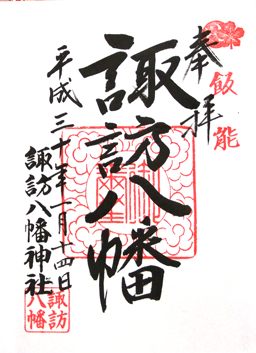 奉拝
飯能
諏訪八幡
平成三十年一月十四日
諏訪八幡神社
諏訪
八幡